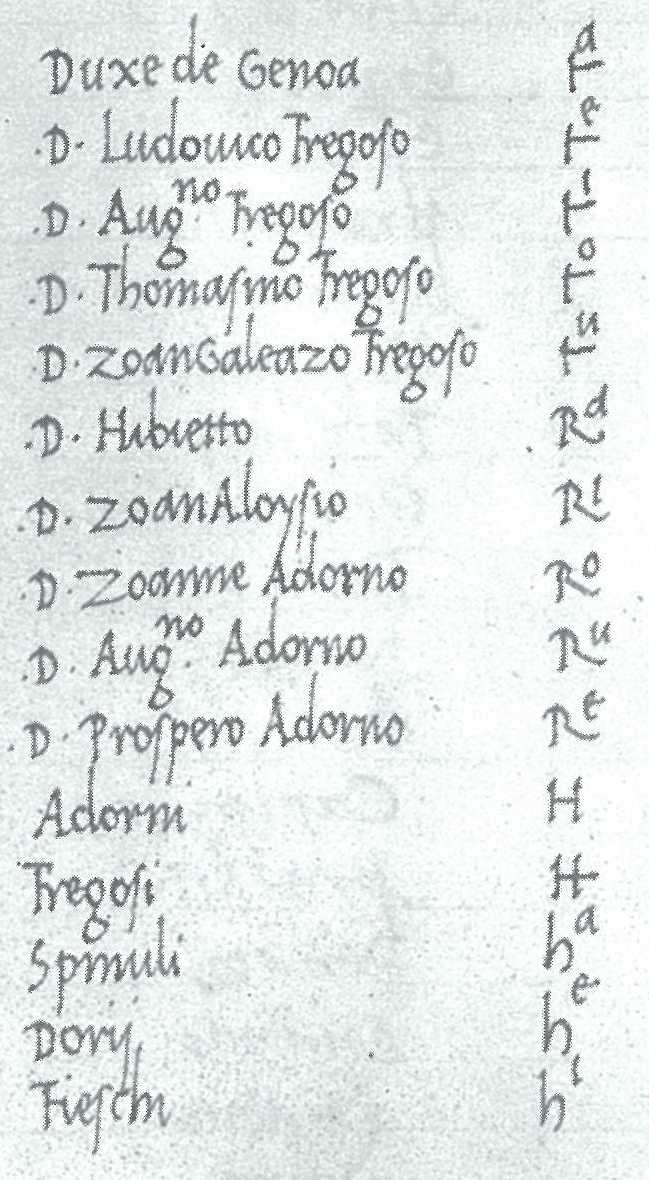 Duxe de Genoa Tᵃ
.D. Ludouico Fregoso Tᵉ
.D. Augno Fregoso Tⁱ
.D. Thomasino Fregoso Tᵒ
.D. ZoanGaleazo Fregoso Tᵘ
.D. Hibietto Rᵃ
.D. ZoanAloysio Rⁱ
.D. Zoanne Adorno Rᵒ
.D. Augno. Adorno Rᵘ
.D. Prospero Adorno Rᵉ
Adorni H
Fregosi
Spinuli hᵃ
Dorij hᵉ
Fieschi hⁱ